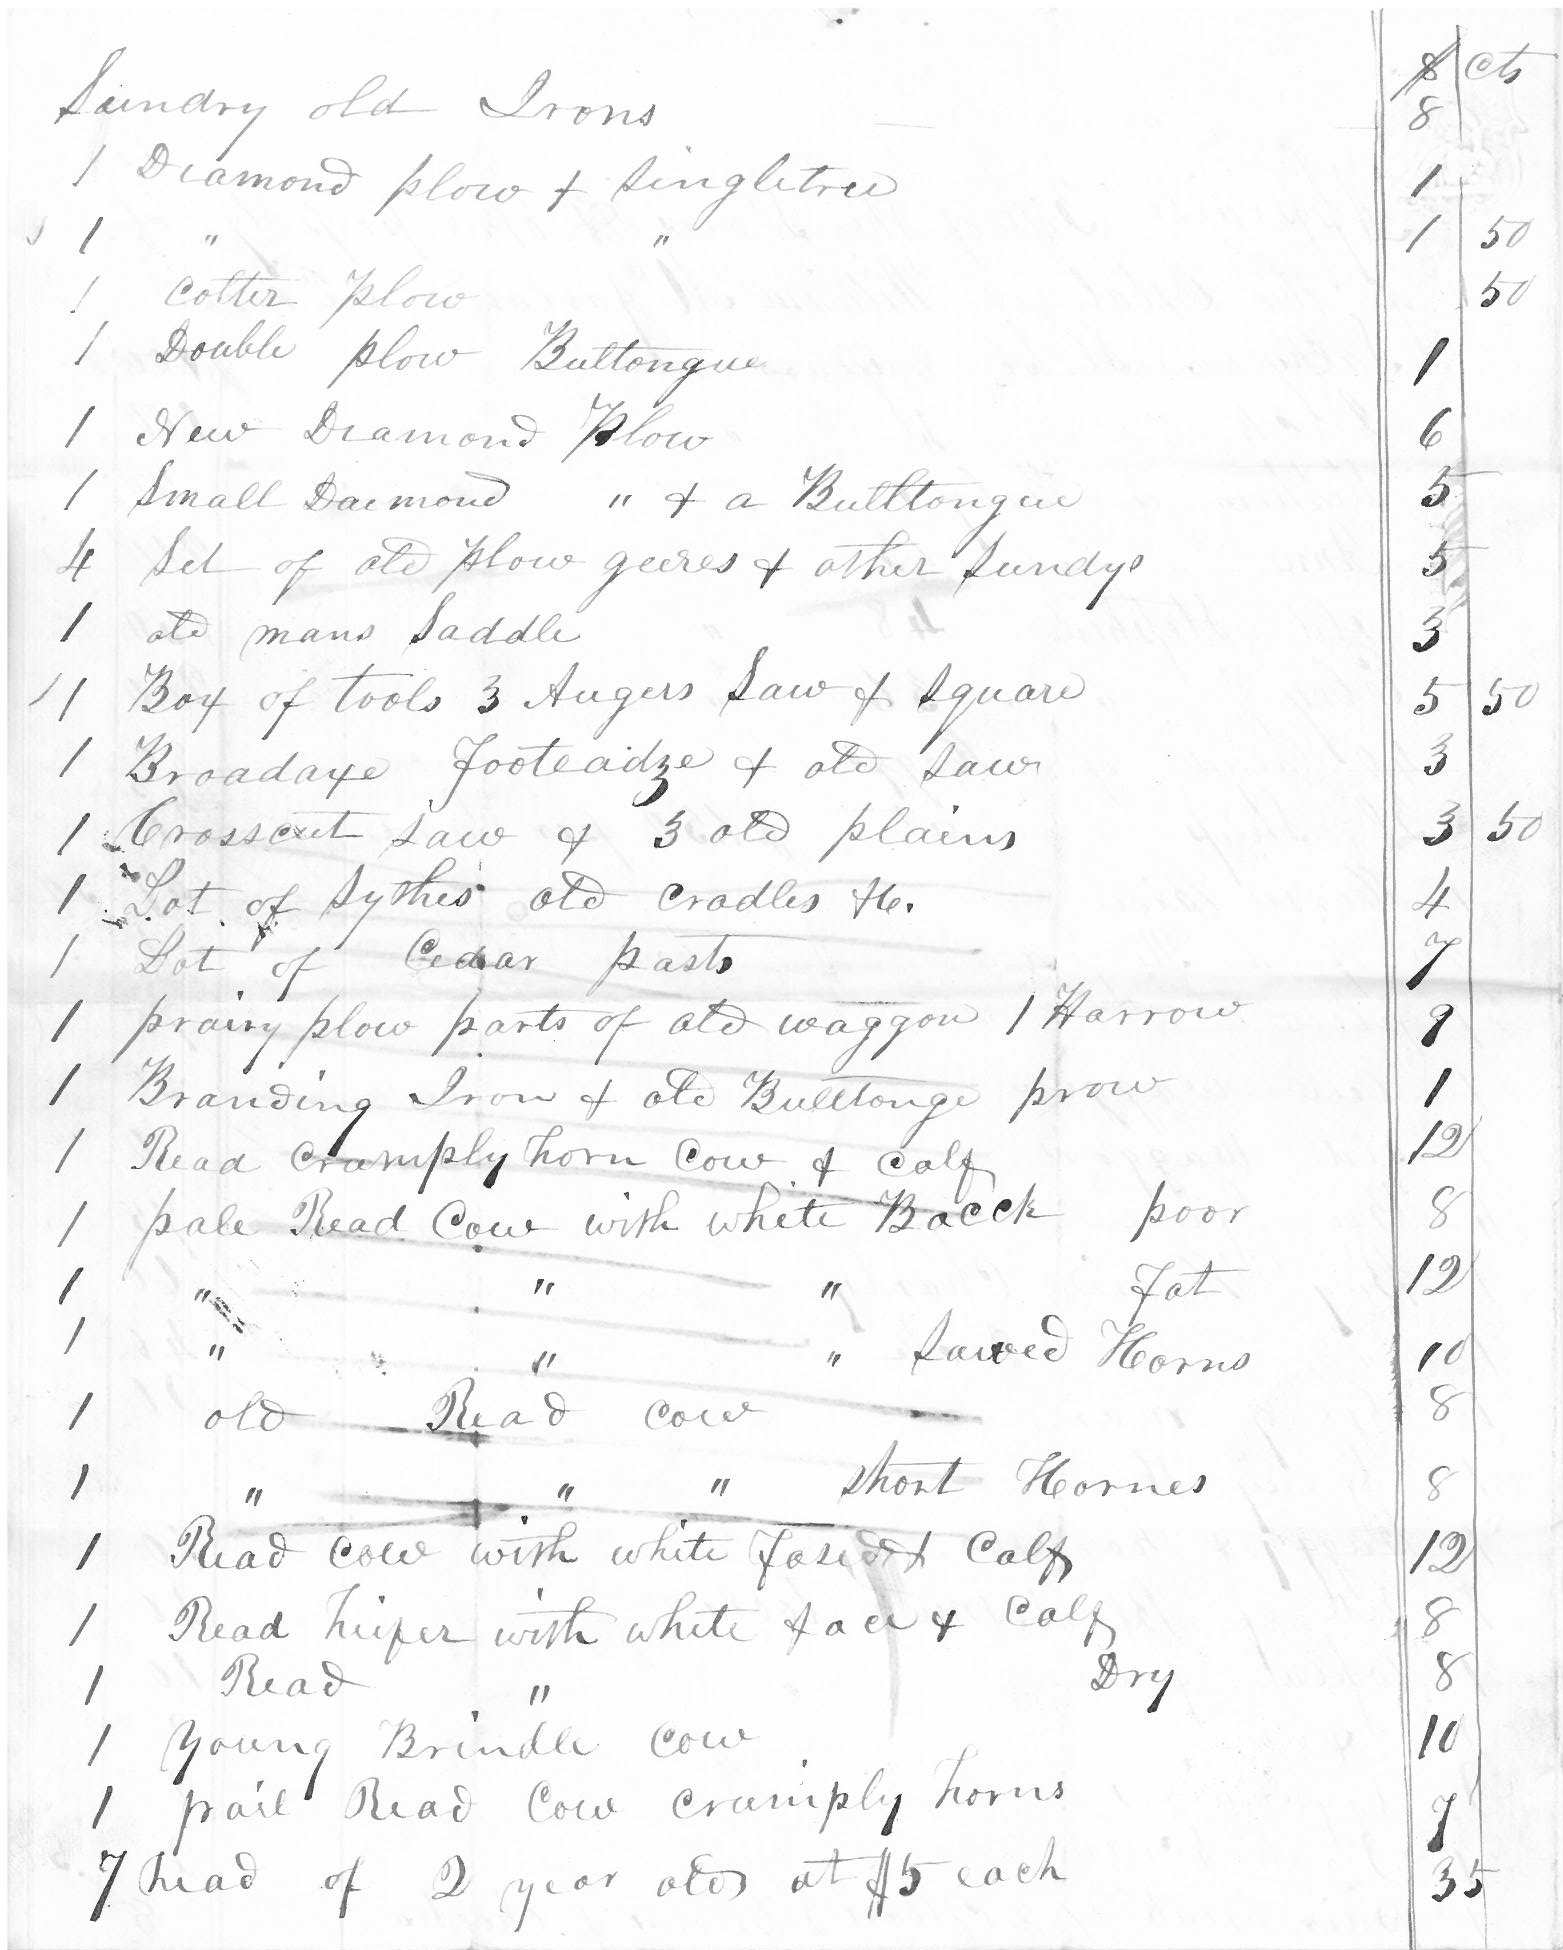 $ cts
Sundry old Irons 8
1 Diamond plow & Singletree 1
1 " " 1 50
1 Cotter plow 50
1 Double plow Bultongue 1
1 New Diamond Plow 6
1 Small Daimond " & a Bulltongue 5
4 Set of old plow geeres & other Sundys 5
1 old mans Saddle 3
1 Box of tools 3 Augers Saw & Square 5 50
1 Broadaxe Footeadze & old Saw 3
1 Crosscut Saw & 3 old plains 3 50
1 Lot of Sythes old Cradles &c. 4
1 Lot of Cedar posts 7
1 prairy plow parts of old waggon 1 Harrow 9
1 Branding Iron & old Bulltonge prow 1
1 Read Crumply horn Cow & Calf 12
1 pale Read Cow with white Bacck poor 8
1 " " " Fat 12
1 " " " Sawed Horns 10
1 old Read Cow 8
1 " " " Short Hornes 8
1 Read Cow with white Fased & Calf 12
1 Read heifer with white face & Calf 8
1 Read " Dry 8
1 young Brindle Cow 10
1 pail Read Cow Crumply horns 7
7 head of 2 year olds at $5 each 35